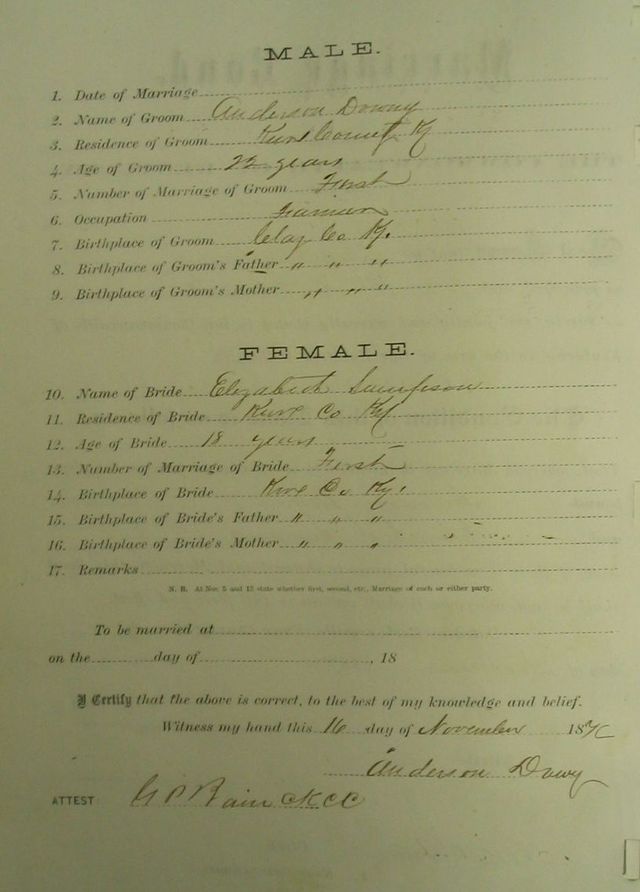 MALE.
1. Date of Marriage
2. Name of Groom Anderson Downy
3. Residence of Groom Knox County Ky
4. Age of Groom 22 years
5. Number of Marriage of Groom First
6. Occupation Farmer
7. Birthplace of Groom Clay Co Ky.
8. Birthplace of Groom's Father " " "
9. Birthplace of Groom's Mother " " "
FEMALE.
10. Name of Bride Elizabeth Sampson
11. Residence of Bride Knox Co Ky
12. Age of Bride 18 years
13. Number of Marriage of Bride First
14. Birthplace of Bride Knox Co Ky.
15. Birthplace of Bride's Father " " "
16. Birthplace of Bride's Mother " " "
17. Remarks
N. B. At Nos. 5 and 13 state whether first, second, etc., Marriage of each or either party.
To be married at
on the day of , 18
I Certify that the above is correct, to the best of my knowledge and belief.
Witness my hand this 16 day of November 187
Anderson Dowy
ATTEST: G P Bain CKCC